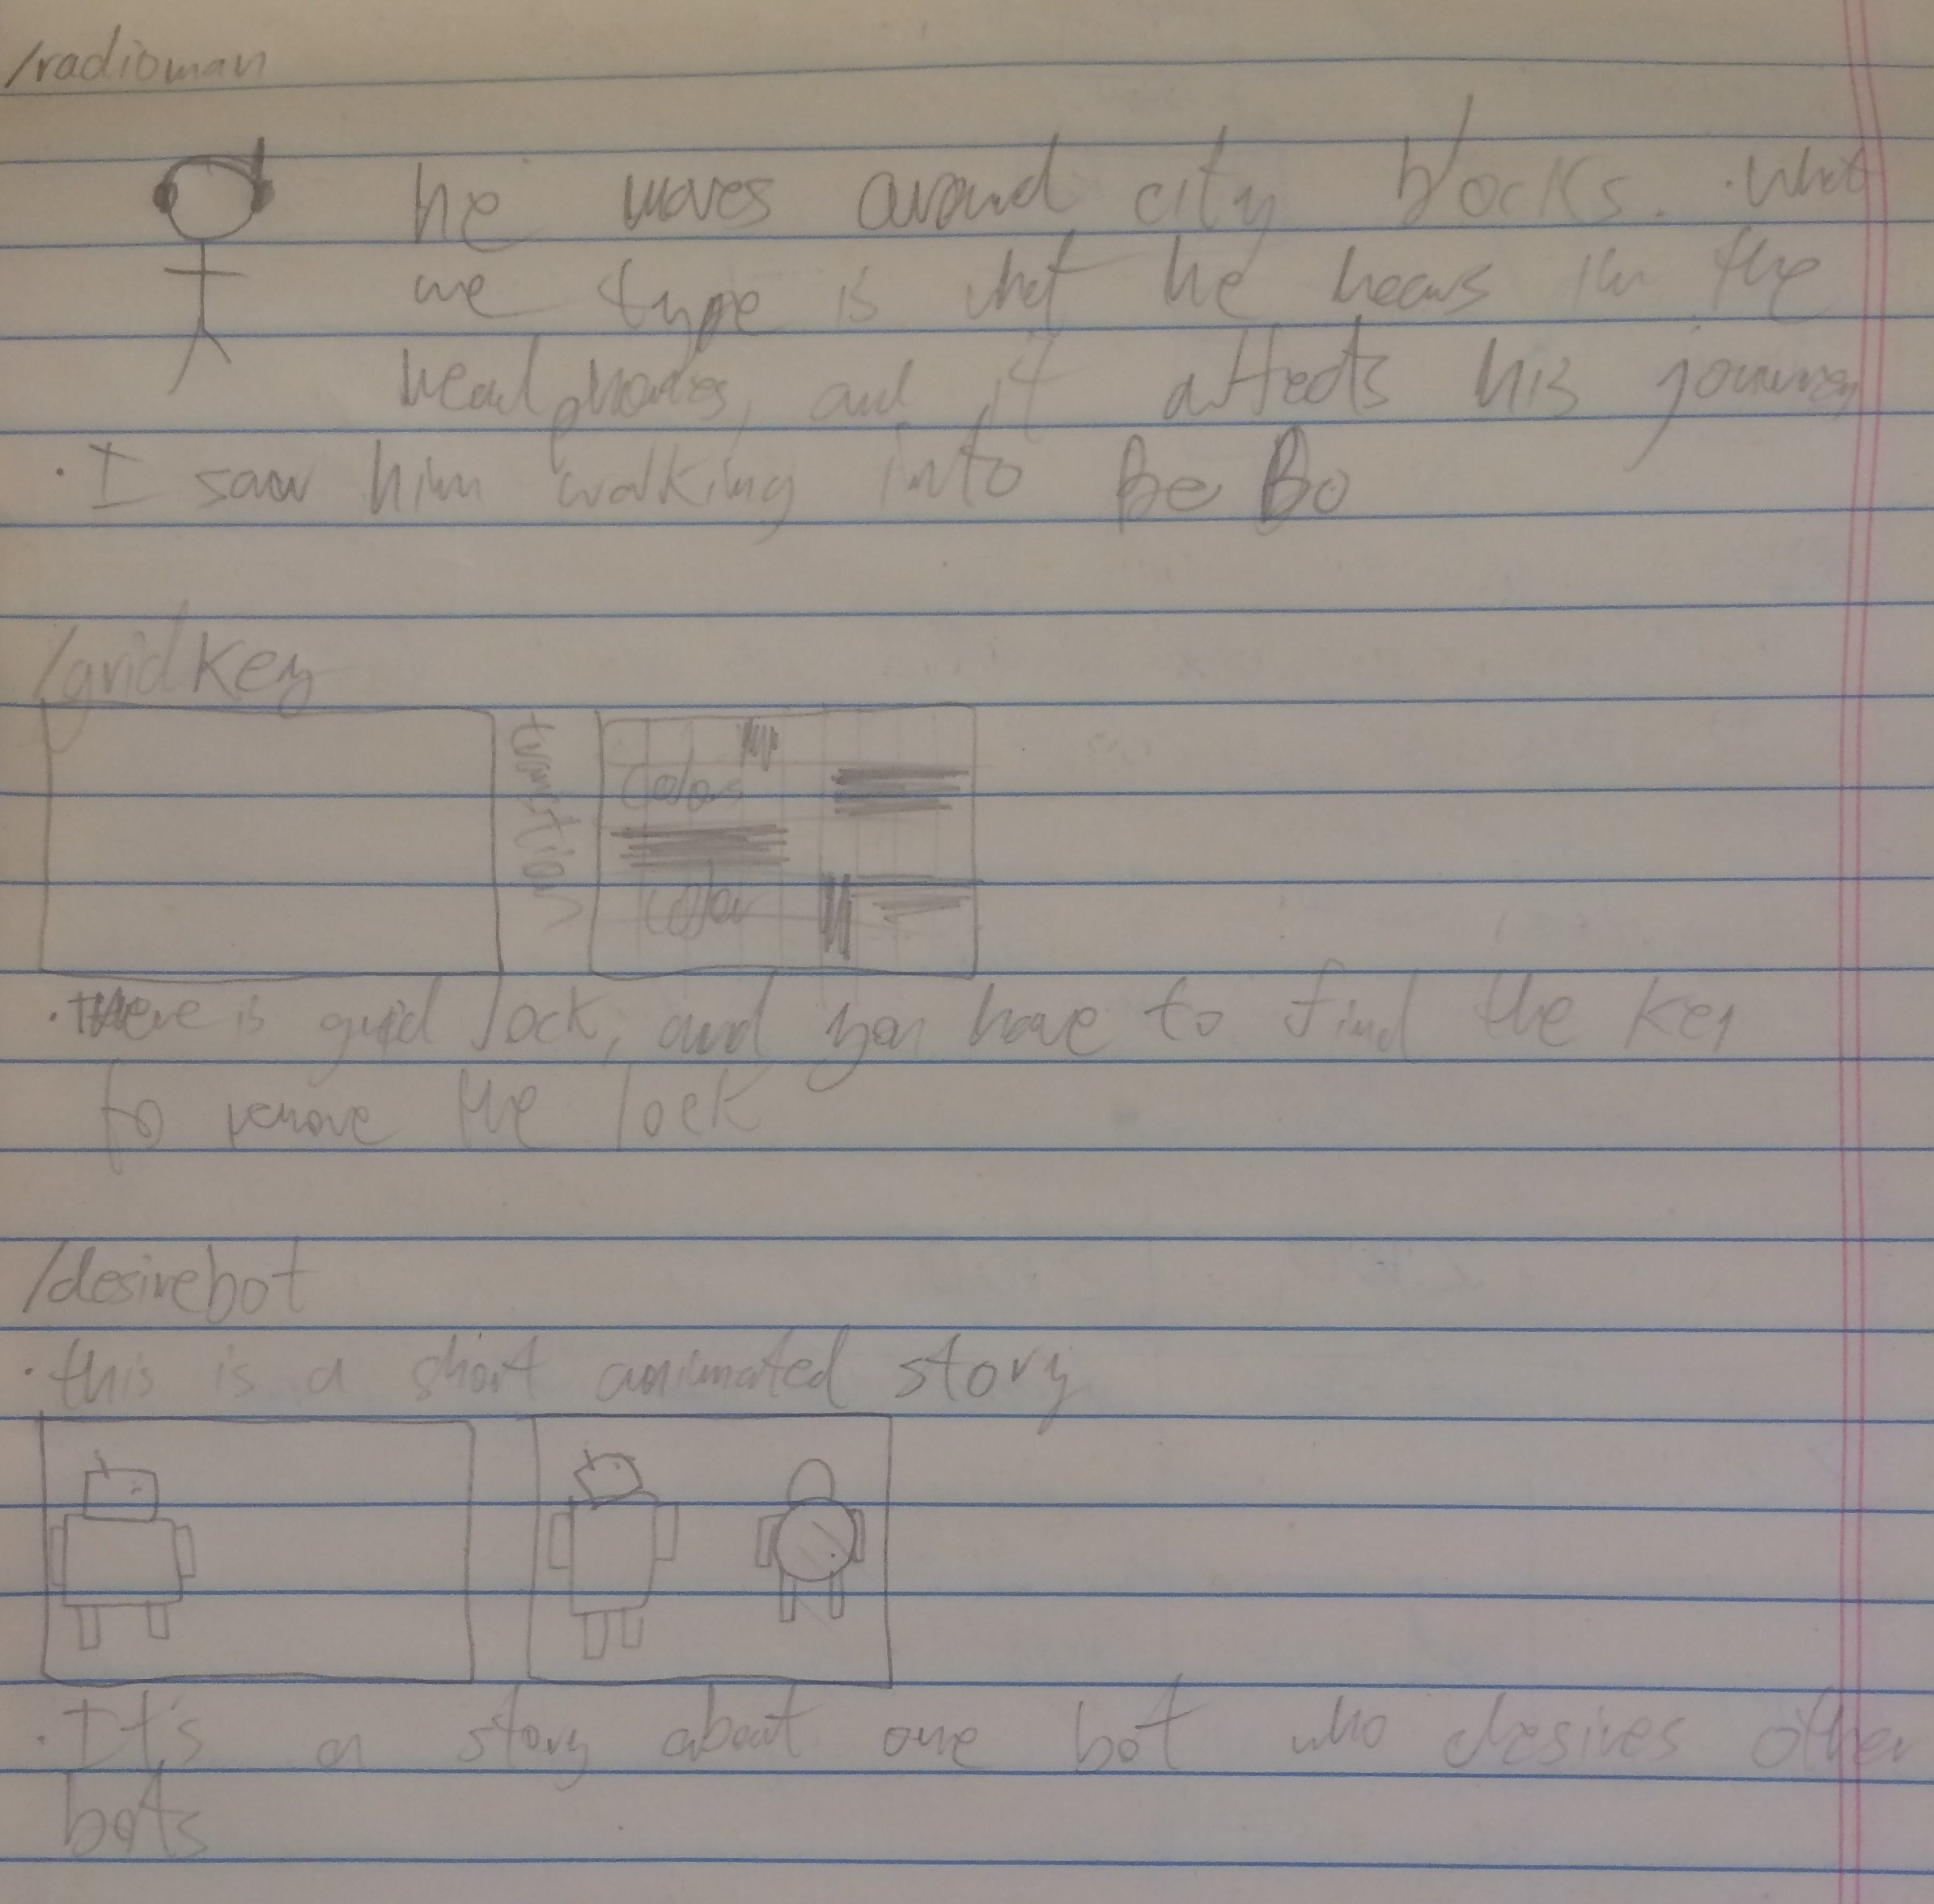 /radioman
he moves around city blocks. what
we type is what he hears in the
headphones, and it affects his journey
· I saw him walking into BeBo
/gridkey
transition
Colors
Color
· there is grid lock, and you have to find the key
to remove the lock
/desirebot
· this is a short animated story
· It's a story about one bot who desires other
bots